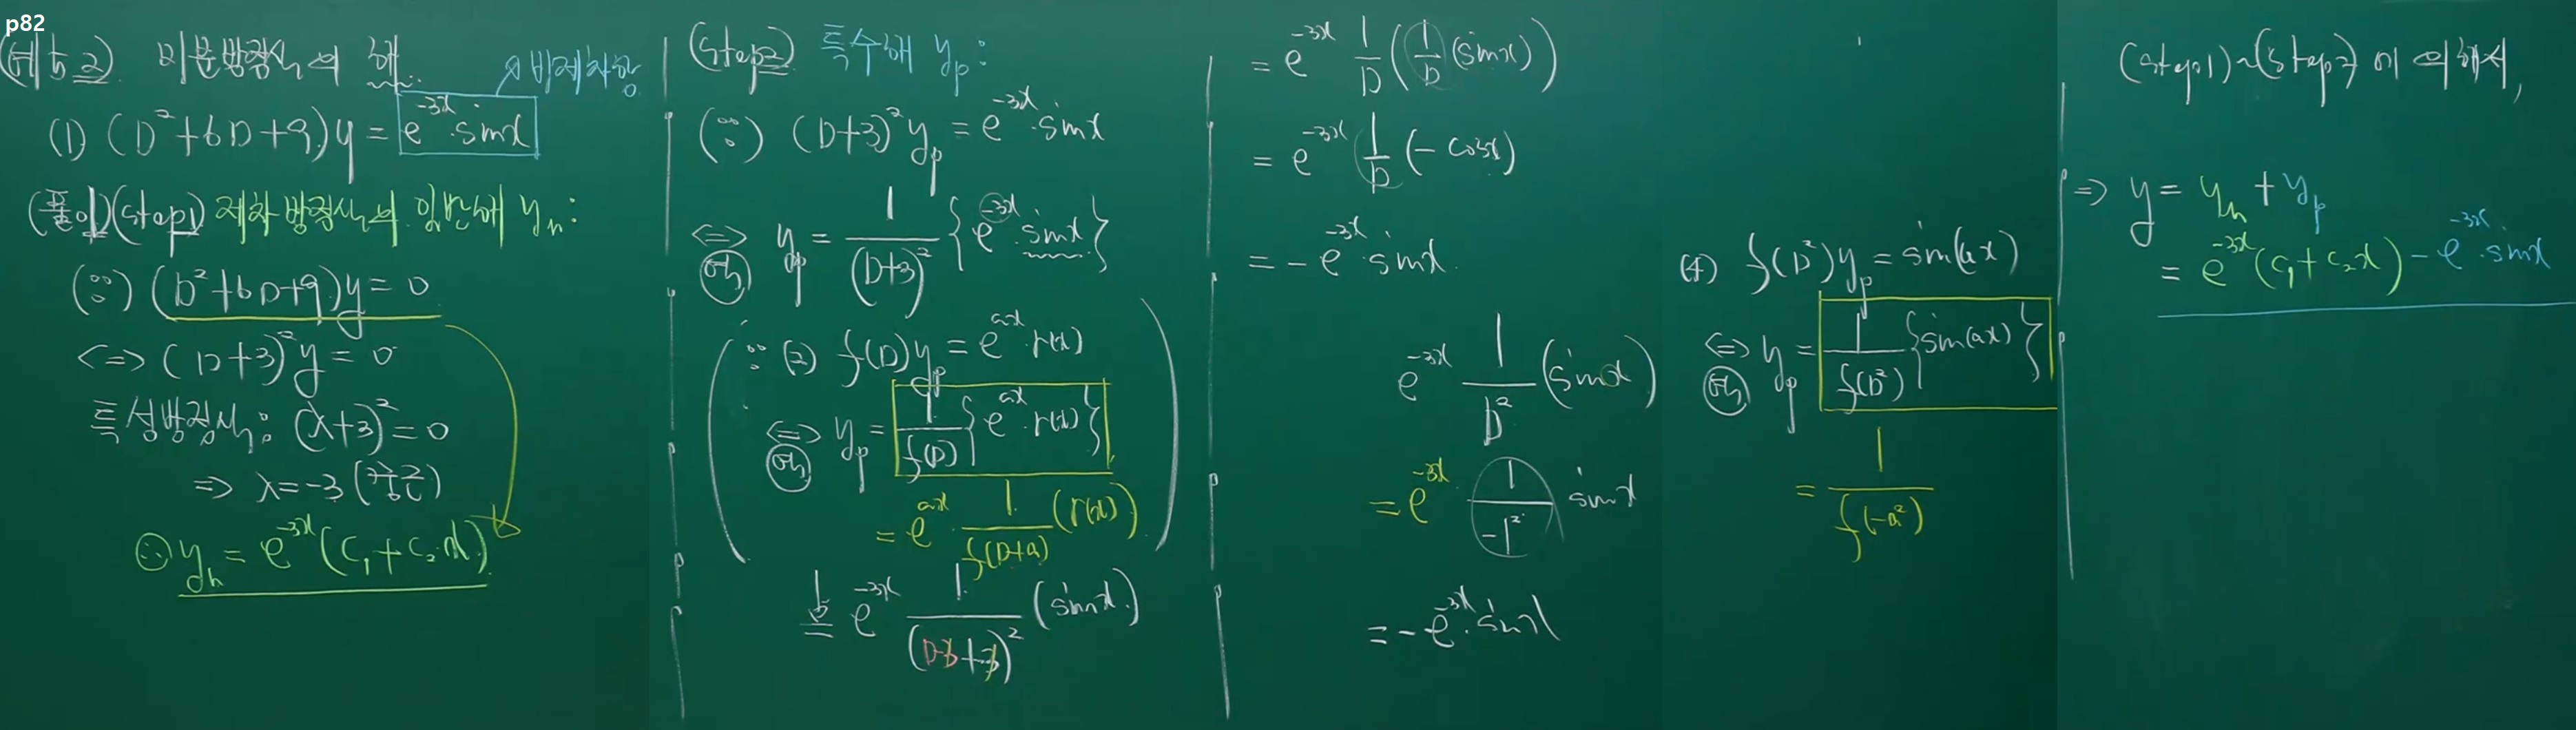 p82
(예제2) 미분방정식의 해.
비제차항
(1) (D²+6D+9)y = e^{-3x}·sinx
(풀이)(step1) 제차방정식의 일반해 y_h:
(∵) (D²+6D+9)y = 0
<=> (D+3)²y = 0
특성방정식: (λ+3)² = 0
=> λ = -3 (중근)
∴ y_h = e^{-3x}(c₁+c₂·x)
(step2) 특수해 y_p:
(∵) (D+3)²y_p = e^{-3x}·sinx
<=> y_p = 1/(D+3)² {e^{-3x}·sinx}
∵ (2) f(D)y_p = e^{ax}·r(x)
<=> y_p = 1/f(D) {e^{ax}·r(x)}
= e^{ax}·1/f(D+a) (r(x))
= e^{-3x} 1/(D-3+3)² (sinx)
= e^{-3x} 1/D (1/D (sinx))
= e^{-3x} 1/D (-cosx)
= -e^{-3x}·sinx.
e^{-3x} 1/D² (sinx)
= e^{-3x}· 1/-1² sinx
= -e^{-3x}·sinx
(4) f(D²)y_p = sin(ax)
<=> y_p = 1/f(D²) {sin(ax)}
= 1/f(-a²)
(step1)~(step2)에 의해서,
=> y = y_h + y_p
= e^{-3x}(c₁+c₂x) - e^{-3x}·sinx